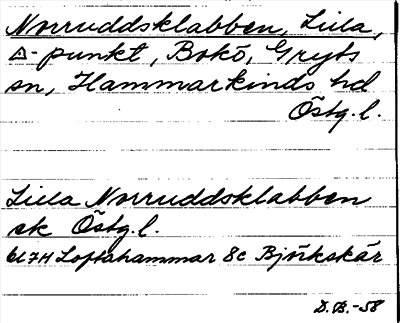 Norruddsklabben, Lilla,
△-punkt, Bokö, Gryts
sn, Hammarkinds hd
Östg.l.
Lilla Norruddsklabben
ek Östg.l.
Loftahammar 8c Björkskär
D.B.-58